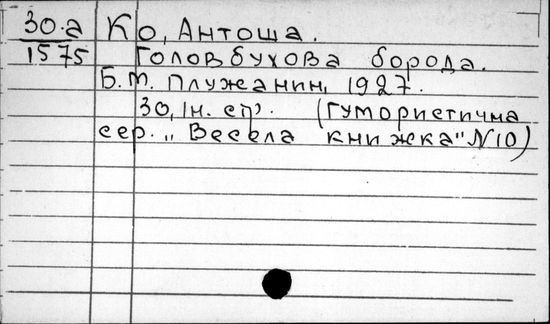 30.а Ко, Антоша.
1575 Головбухова борода.
Б.м. Плужанин, 1927.
30, Ін. стр. (Гумористична
сер. „Весела книжка" N10)